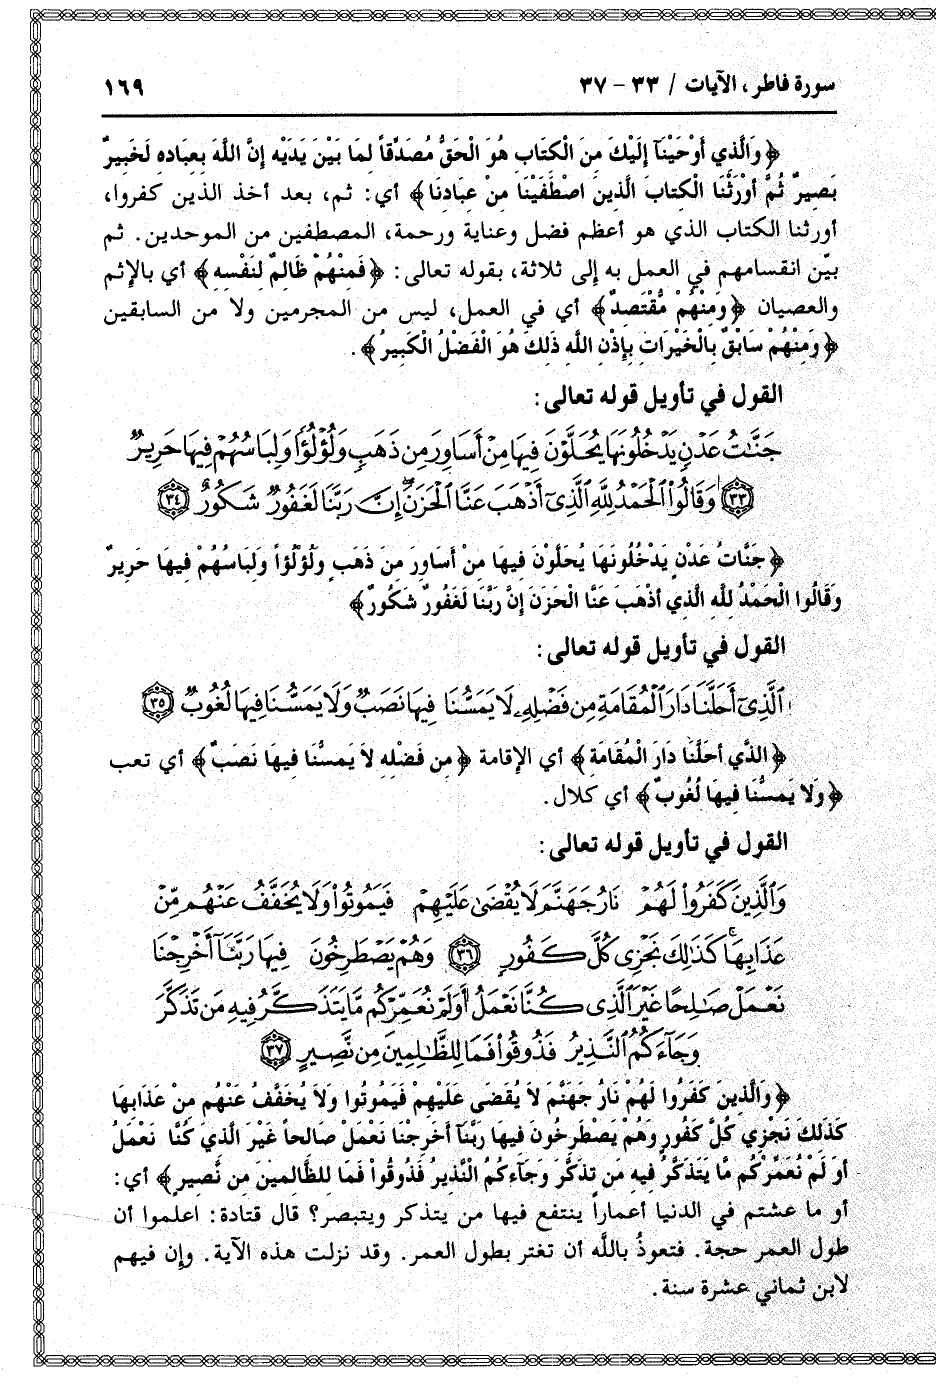 سورة فاطر، الآيات / ٣٣ - ٣٧ ١٦٩
﴿وَالَّذي أَوْحَيْنَآ إِلَيْكَ مِنَ الْكِتَابِ هُوَ الْحَقُّ مُصَدِّقاً لِمَا بَيْنَ يَدَيْهِ إِنَّ اللَّهَ بِعِبَادِهِ لَخَبِيرٌ
بَصِيرٌ ثُمَّ أَوْرَثْنَا الْكِتَابَ الَّذِينَ اصْطَفَيْنَا مِنْ عِبَادِنَا﴾ أي: ثم، بعد أخذ الذين كفروا،
أورثنا الكتاب الذي هو أعظم فضل وعناية ورحمة، المصطفين من الموحدين. ثم
بيّن انقسامهم في العمل به إلى ثلاثة، بقوله تعالى: ﴿فَمِنْهُمْ ظَالِمٌ لِنَفْسِهِ﴾ أي بالإثم
والعصيان ﴿وَمِنْهُمْ مُقْتَصِدٌ﴾ أي في العمل، ليس من المجرمين ولا من السابقين
﴿وَمِنْهُمْ سَابِقٌ بِالْخَيْرَاتِ بِإِذْنِ اللَّهِ ذَلِكَ هُوَ الْفَضْلُ الْكَبِيرُ﴾.
القول في تأويل قوله تعالى:
جَنَّٰتُ عَدْنٍ يَدْخُلُونَهَا يُحَلَّوْنَ فِيهَا مِنْ أَسَاوِرَ مِن ذَهَبٍ وَلُؤْلُؤًا وَلِبَاسُهُمْ فِيهَا حَرِيرٌ
﴿٣٣﴾ وَقَالُوا۟ ٱلْحَمْدُ لِلَّهِ ٱلَّذِىٓ أَذْهَبَ عَنَّا ٱلْحَزَنَ ۖ إِنَّ رَبَّنَا لَغَفُورٌ شَكُورٌ ﴿٣٤﴾
﴿جَنَّاتُ عَدْنٍ يَدْخُلُونَهَا يُحَلَّوْنَ فِيهَا مِنْ أَسَاوِرَ مِنْ ذَهَبٍ وَلُؤْلُؤاً وَلِبَاسُهُمْ فِيهَا حَرِيرٌ
وَقَالُوا الْحَمْدُ لِلَّهِ الَّذِي أَذْهَبَ عَنَّا الْحَزَنَ إِنَّ رَبَّنَا لَغَفُورٌ شَكُورٌ﴾
القول في تأويل قوله تعالى:
ٱلَّذِىٓ أَحَلَّنَا دَارَ ٱلْمُقَامَةِ مِن فَضْلِهِۦ لَا يَمَسُّنَا فِيهَا نَصَبٌ وَلَا يَمَسُّنَا فِيهَا لُغُوبٌ ﴿٣٥﴾
﴿الذَّي أَحَلَّنَا دَارَ الْمُقَامَةِ﴾ أي الإقامة ﴿مِن فَضْلِهِ لاَ يَمسُّنَا فِيهَا نَصَبٌ﴾ أي تعب
﴿وَلاَ يَمسُّنَا فِيهَا لُغُوبٌ﴾ أي كلال.
القول في تأويل قوله تعالى:
وَٱلَّذِينَ كَفَرُوا۟ لَهُمْ نَارُ جَهَنَّمَ لَا يُقْضَىٰ عَلَيْهِمْ فَيَمُوتُوا۟ وَلَا يُخَفَّفُ عَنْهُم مِّنْ
عَذَابِهَا ۚ كَذَٰلِكَ نَجْزِى كُلَّ كَفُورٍ ﴿٣٦﴾ وَهُمْ يَصْطَرِخُونَ فِيهَا رَبَّنَآ أَخْرِجْنَا
نَعْمَلْ صَٰلِحًا غَيْرَ ٱلَّذِى كُنَّا نَعْمَلُ ۚ أَوَلَمْ نُعَمِّرْكُم مَّا يَتَذَكَّرُ فِيهِ مَن تَذَكَّرَ
وَجَآءَكُمُ ٱلنَّذِيرُ ۖ فَذُوقُوا۟ فَمَا لِلظَّٰلِمِينَ مِن نَّصِيرٍ ﴿٣٧﴾
﴿وَالَّذِينَ كَفَرُوا لَهُمْ نَارُ جَهَنَّمَ لاَ يُقضَى عَلَيْهِمْ فَيَمُوتُوا وَلاَ يُخَفَّفُ عَنْهُم مِنْ عَذَابِهَا
كَذَلِكَ نَجْزِي كُلَّ كَفُورٍ وَهُمْ يَصْطَرِخُونَ فِيهَا رَبَّنَا أَخرِجْنَا نَعْمَلْ صَالِحاً غَيْرَ الَّذِي كُنَّا نَعْمَلُ
أَوَ لَمْ نُعَمِّرْكُم مَّا يَتَذَكَّرُ فِيهِ مَن تَذَكَّرَ وَجَآءَكُمُ النَّذِيرُ فَذُوقُواْ فَمَا لِلظَّالِمِينَ مِن نَّصِيرٍ﴾ أي:
أو ما عشتم في الدنيا أعماراً ينتفع فيها من يتذكر ويتبصر؟ قال قتادة: اعلموا أن
طول العمر حجة. فتعوذُ باللَّه أن تغتر بطول العمر. وقد نزلت هذه الآية. وإن فيهم
لابن ثماني عشرة سنة.